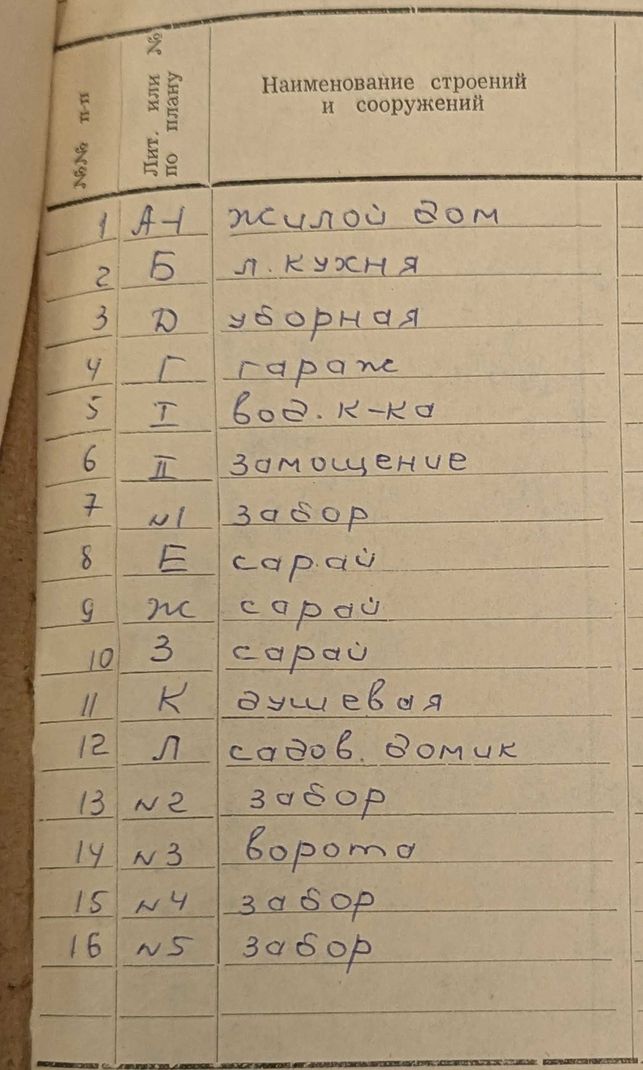 №№ п-п
Лит. или №
по плану
Наименование строений
и сооружений
1 А-1 жилой дом
2 Б л. кухня
3 D уборная
4 Г гараж
5 I вод. к-ка
6 II замощение
7 N1 забор
8 Е сарай
9 Ж сарай
10 З сарай
11 К душевая
12 Л садов. домик
13 N2 забор
14 N3 ворота
15 N4 забор
16 N5 забор